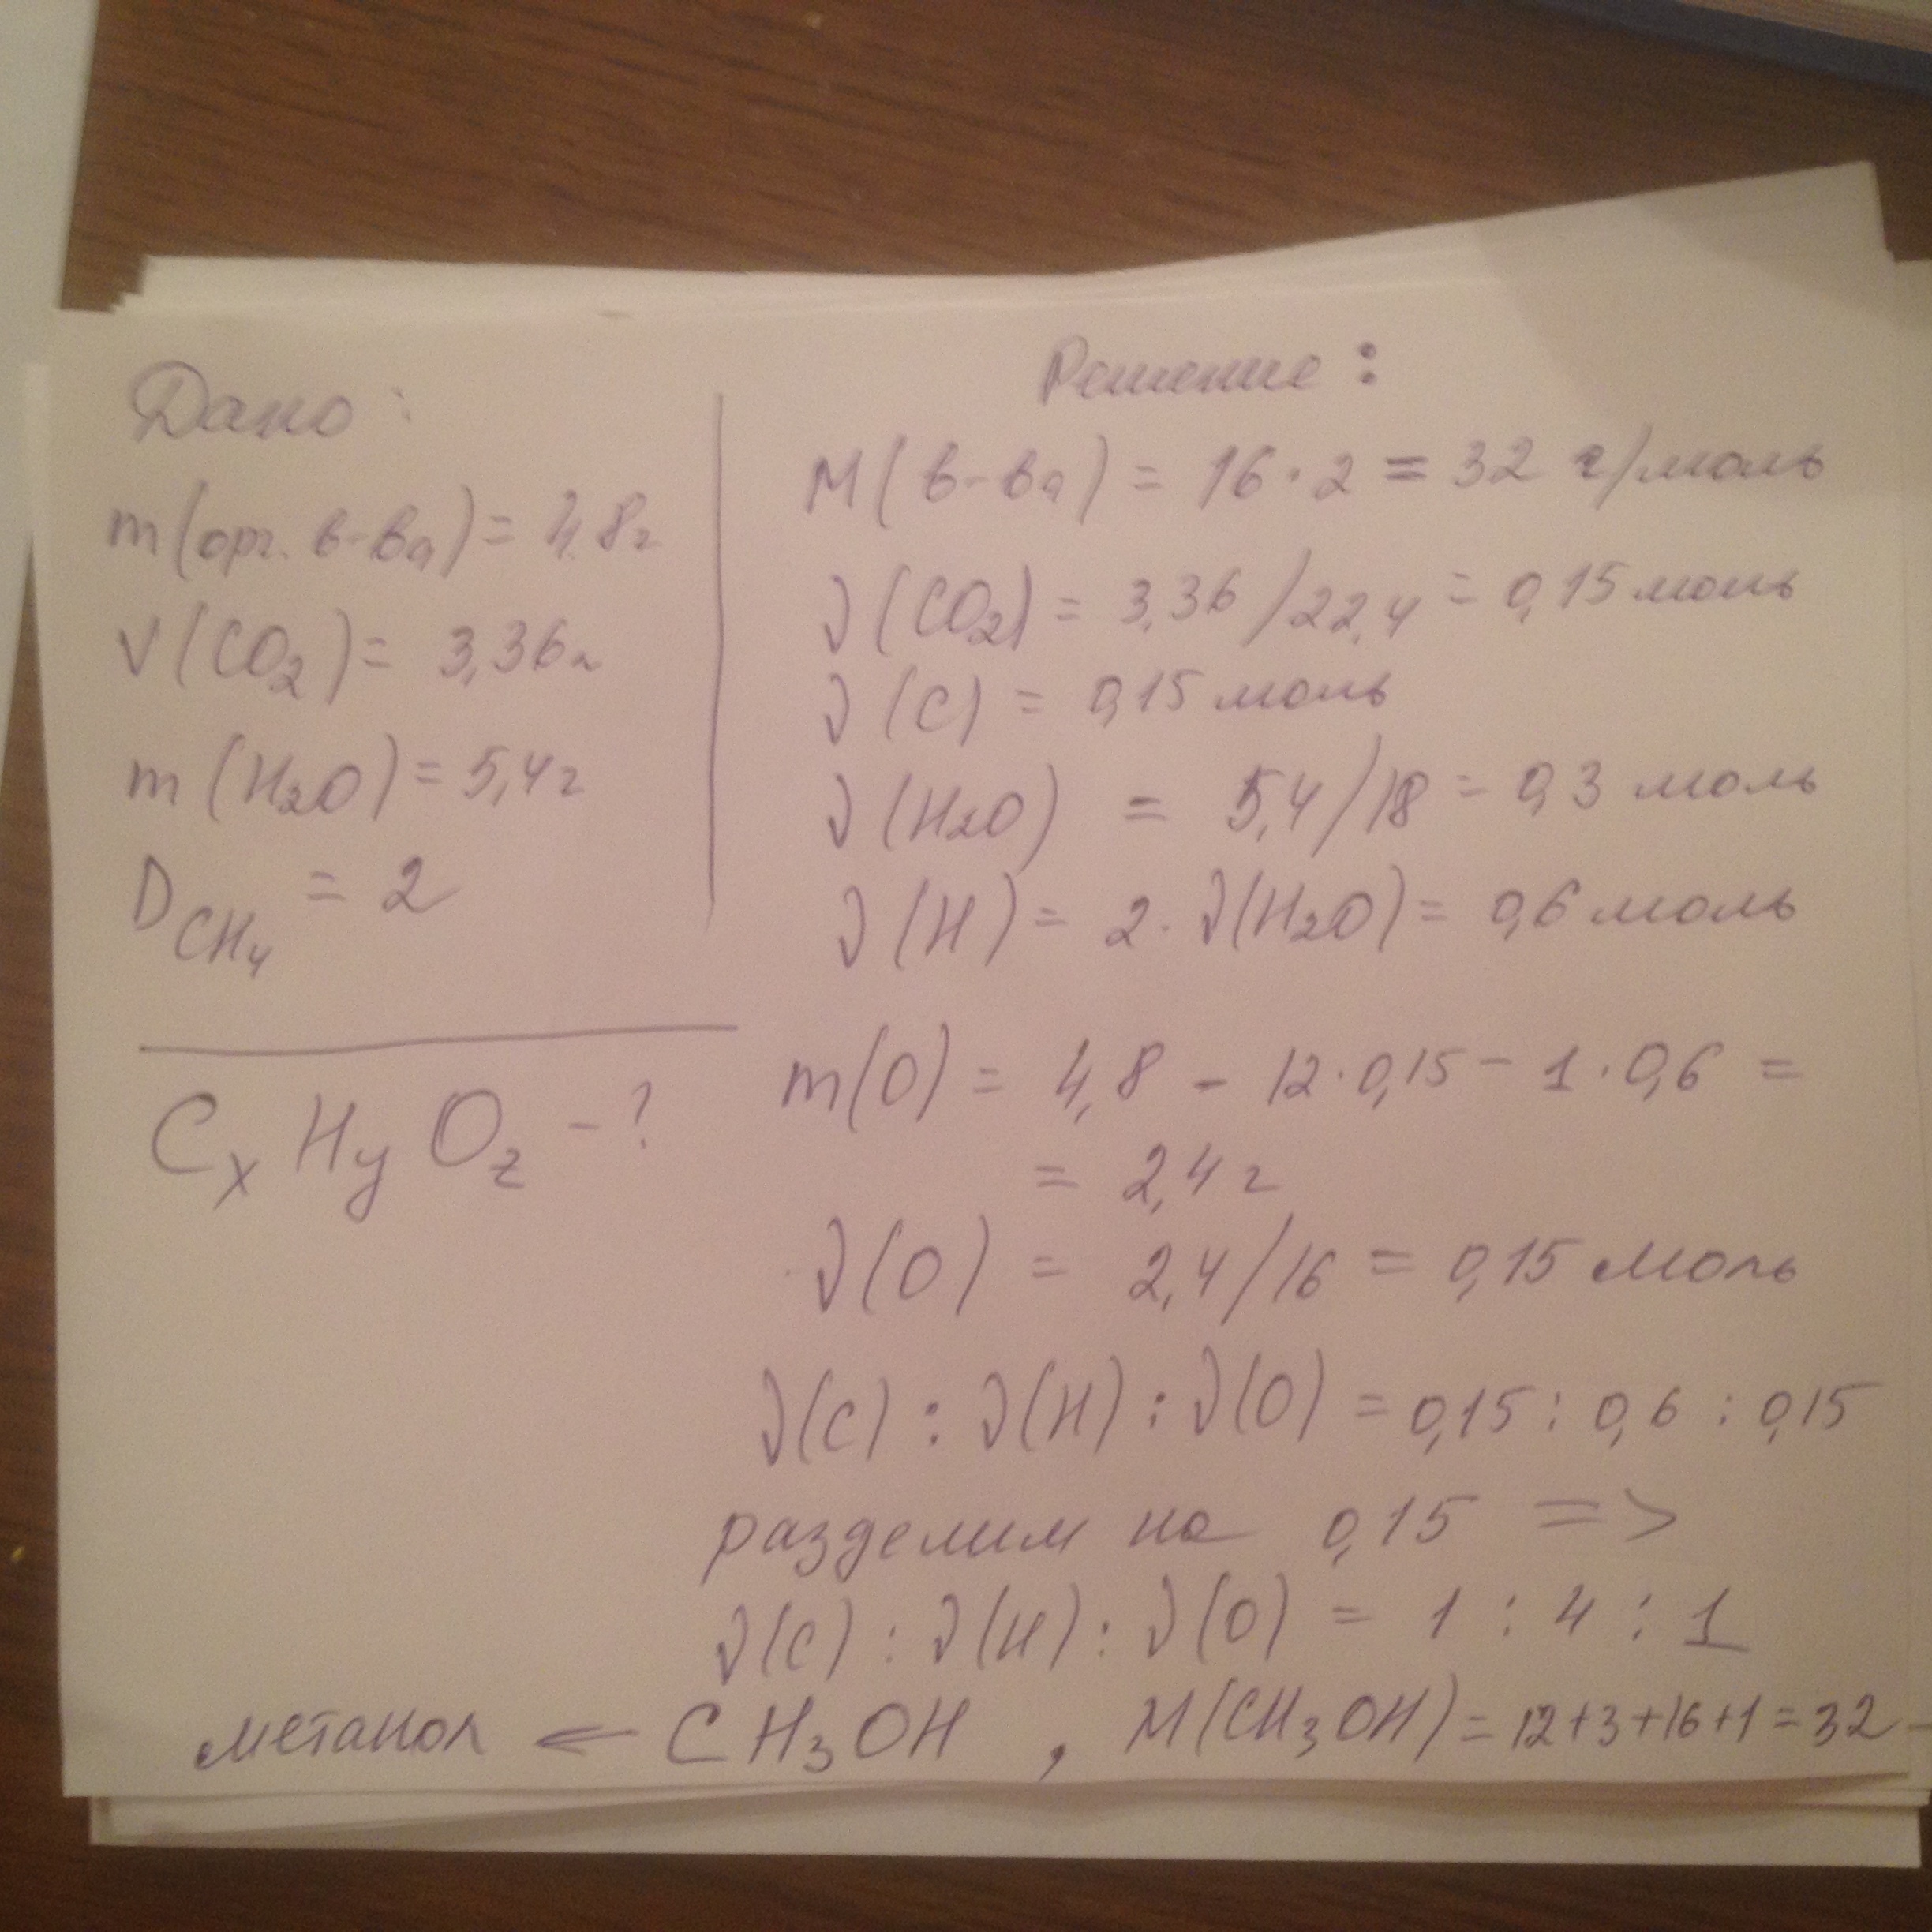 Дано:
m(орг. в-ва) = 4,8г
V(CO₂) = 3,36л
m(H₂O) = 5,4г
D CH₄ = 2
CxHyOz - ?
Решение:
M(в-ва) = 16·2 = 32 г/моль
ν(CO₂) = 3,36/22,4 = 0,15 моль
ν(C) = 0,15 моль
ν(H₂O) = 5,4/18 = 0,3 моль
ν(H) = 2·ν(H₂O) = 0,6 моль
m(O) = 4,8 - 12·0,15 - 1·0,6 =
= 2,4 г
ν(O) = 2,4/16 = 0,15 моль
ν(C) : ν(H) : ν(O) = 0,15 : 0,6 : 0,15
разделим на 0,15 =>
ν(C) : ν(H) : ν(O) = 1 : 4 : 1
метанол ⇐ CH₃OH, M(CH₃OH) = 12+3+16+1 = 32